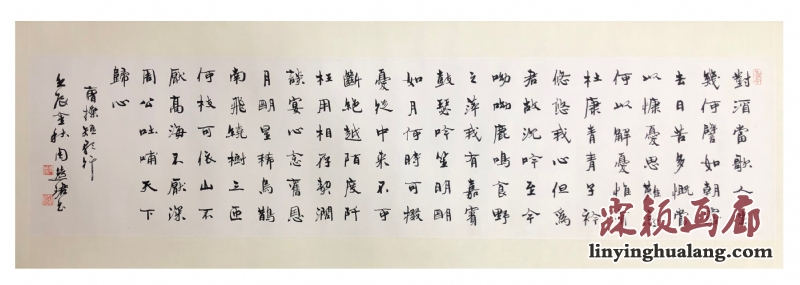 對酒當歌人生
幾何譬如朝露
去日苦多慨當
以慷憂思難
何以解憂惟
杜康青青子衿
悠悠我心但為
君故沉吟至今
呦呦鹿鳴食野
之萍我有嘉賓
鼓瑟吟笙明明
如月何時可掇
憂從中來不可
斷絕越陌度阡
枉用相存契闊
談宴心念舊恩
月明星稀烏鵲
南飛繞樹三匝
何枝可依山不
厭高海不厭深
周公吐哺天下
歸心
曹操短歌行
壬辰金秋周書
霖颖画廊
linyinghualang.com